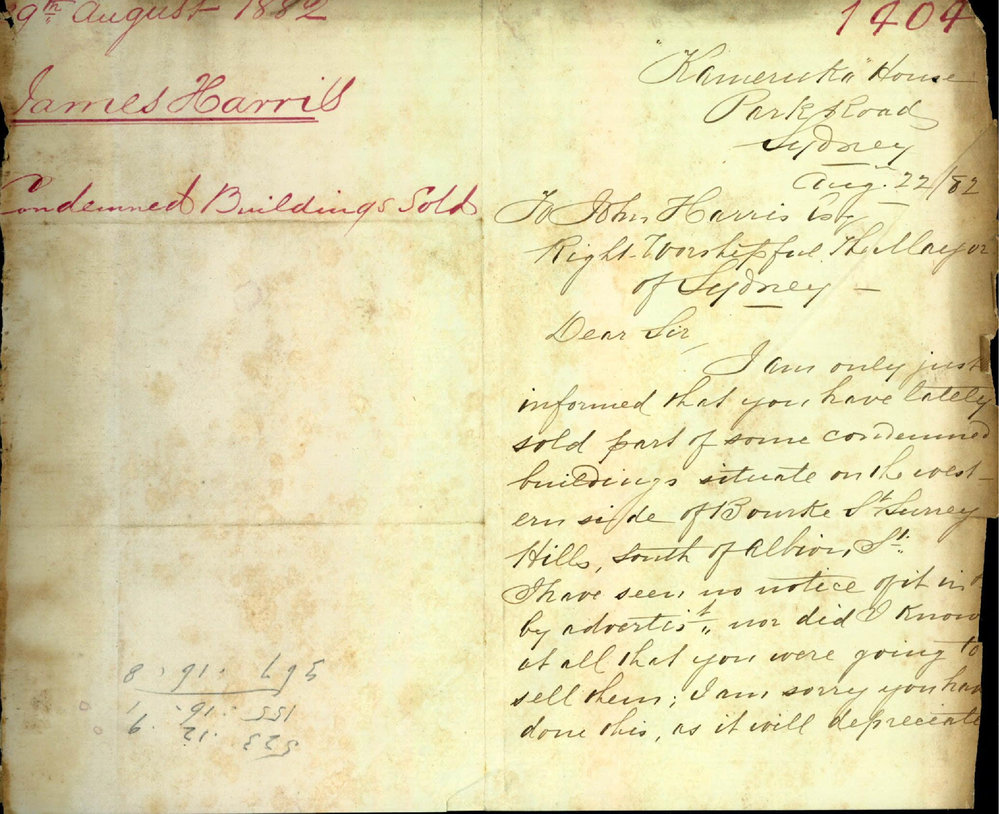 29th August 1882
James Harris
Condemned Buildings Sold
1404
"Kameruka" House
Park Road
Sydney
Augt. 22/82
To John Harris Esq
Right Worshipful The Mayor
of Sydney —
Dear Sir,
I am only just
informed that you have lately
sold part of some condemned
buildings situate on the west-
ern side of Bourke St Surrey
Hills, south of Albion St.
I have seen no notice of it in
by advertist., nor did I know
at all that you were going to
sell them; I am sorry you have
done this, as it will depreciate
523 . 12 . 9
155 . 16 . 1
567 . 16 . 8